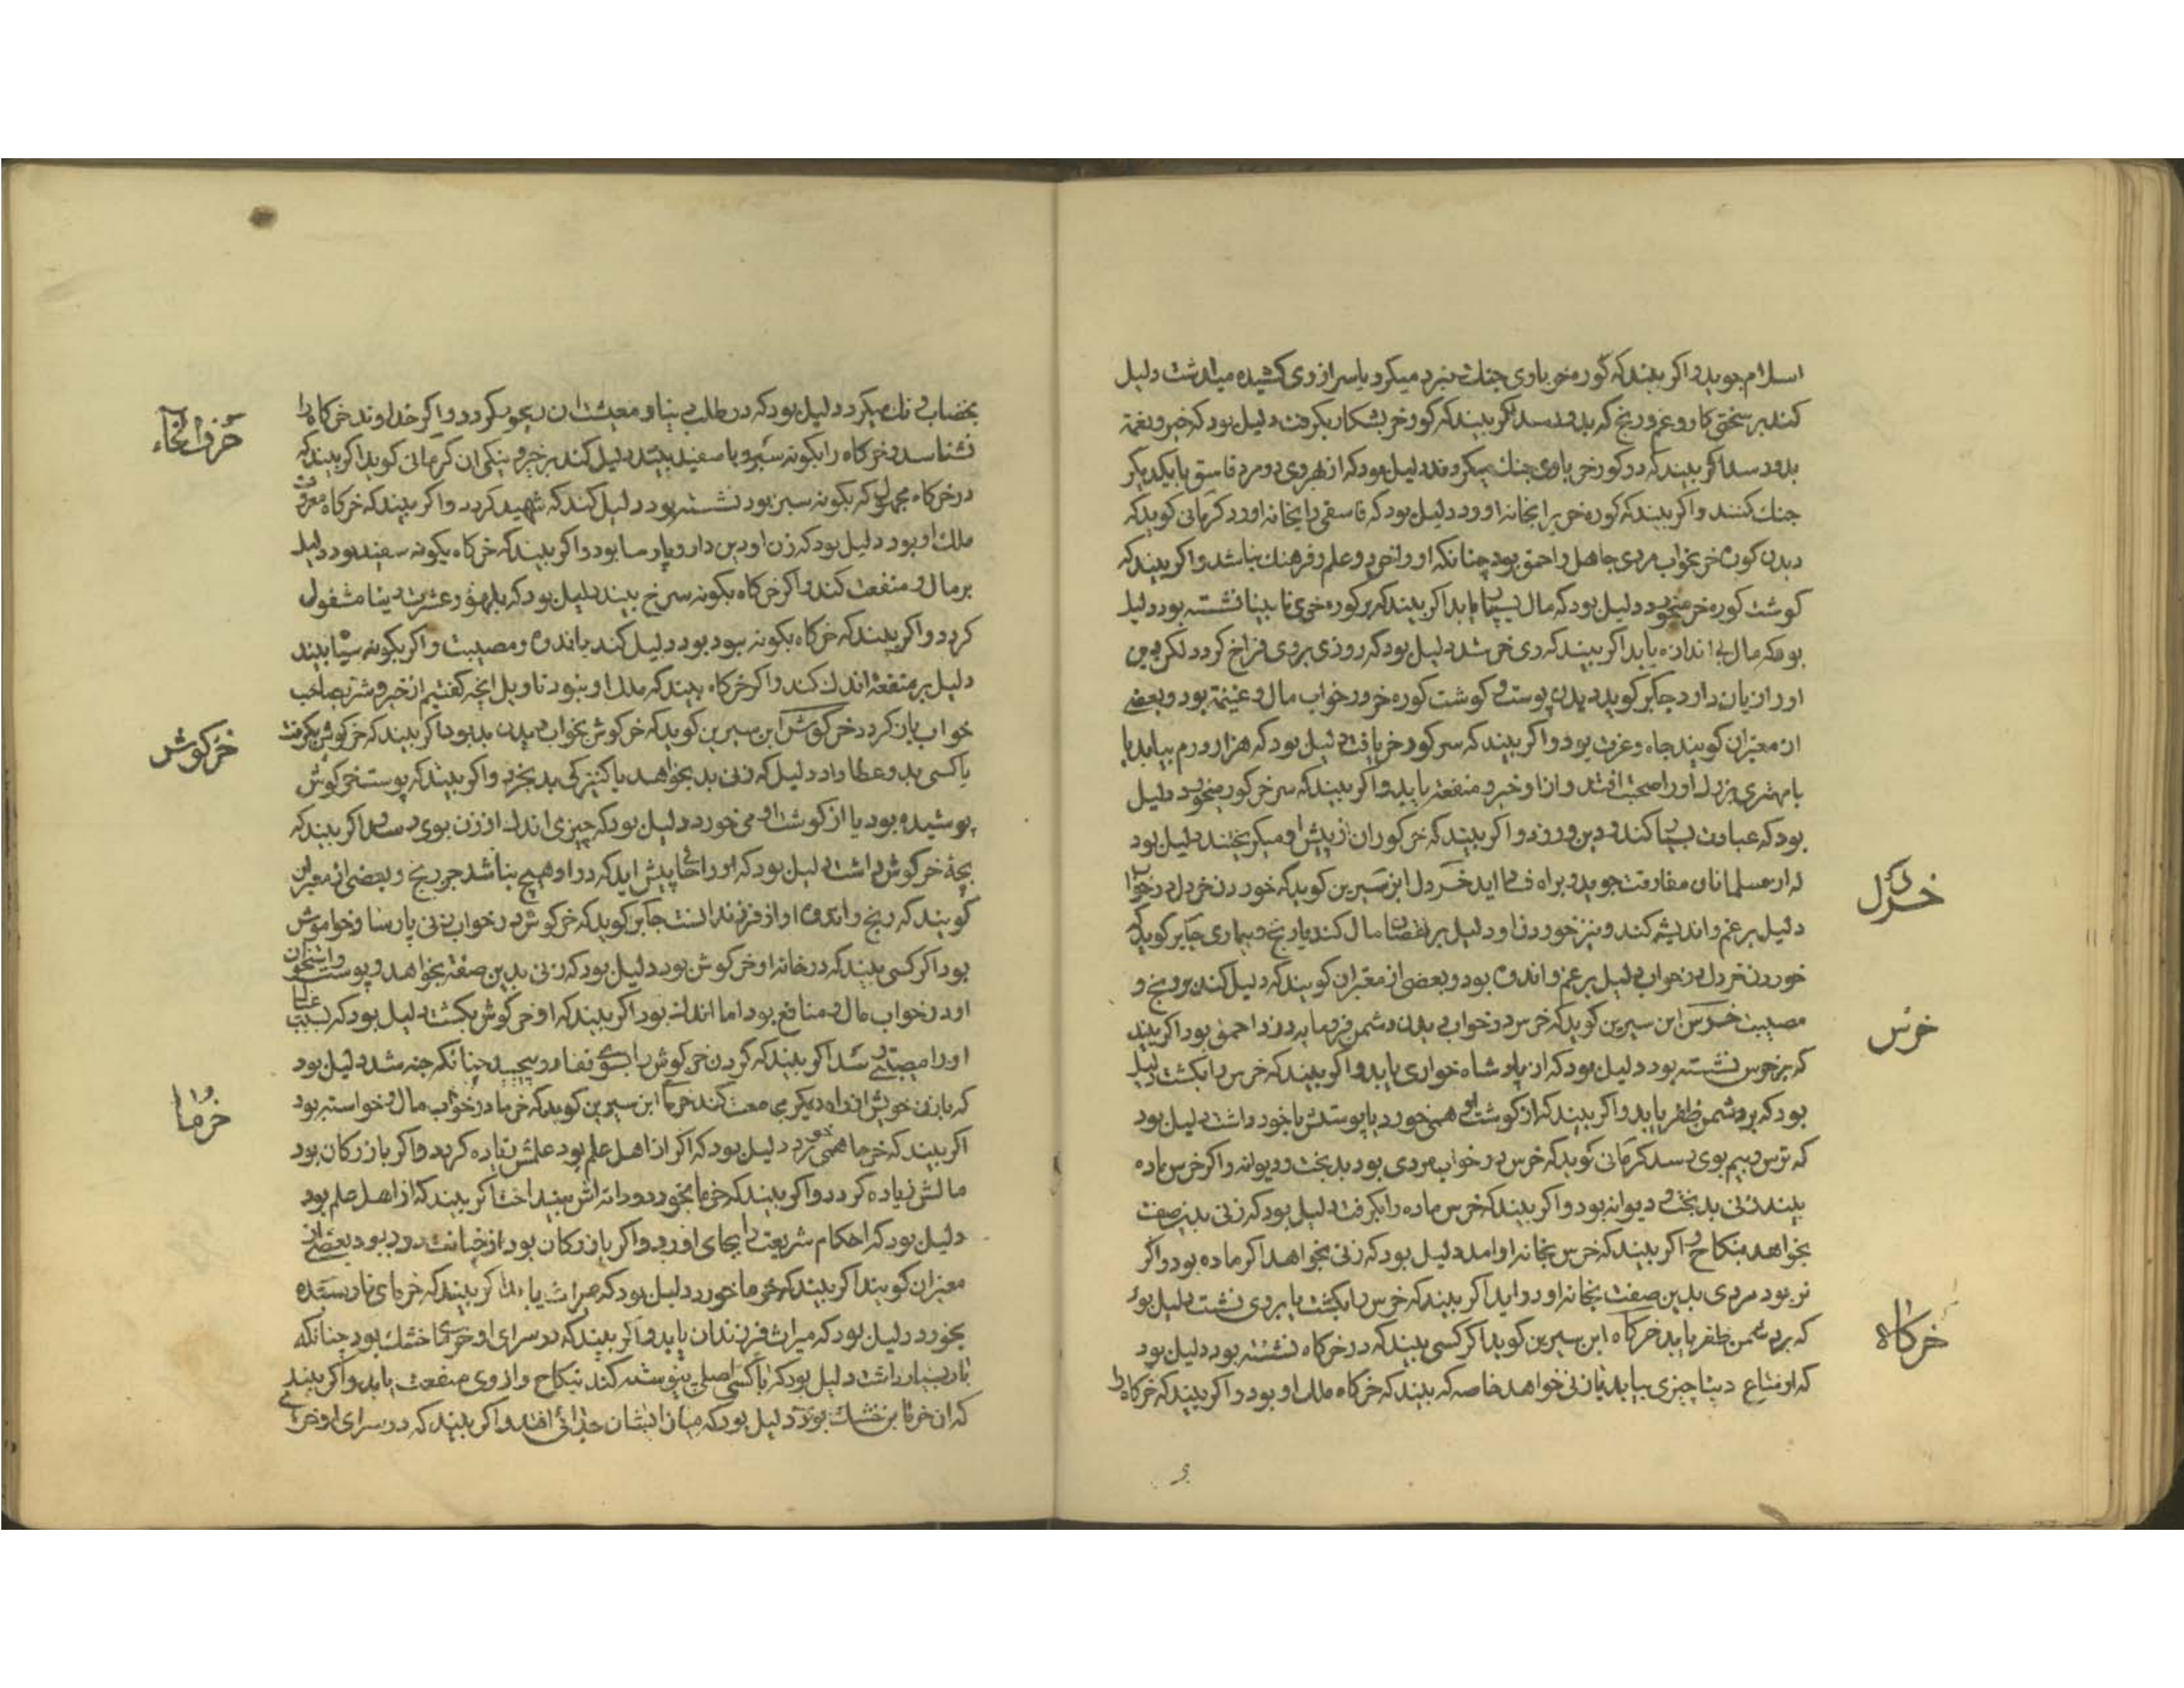 اسلام جوید و اکر بیند که کوره خر با وی جنك نبرد میکرد یا سر از وی کشیده میداشت دلیل
کند بر سختی کار و غم و رنج که بدو رسد اکر بیند که کور خر بشکار بکرفت دلیل بود که خیر و نعمة
بدو رسد اکر بیند که دو کور خر با وی جنك میکردند دلیل بود که از بهر وی دو مرد فاسق با یکدیکر
جنك کنند و اکر بیند که کوره خر را بخانه اورد دلیل بود که فاسقی را بخانه اورد کرمانی کوید که
دیدن کوره خر بخواب مردی جاهل و احمق بود چنانکه او را خرد و علم و فرهنك نباشد و اکر بیند که
کوشت کوره خر میخورد دلیل بود که مال بسیار یابد اکر بیند که بر کوره خری نابینا نشسته بود دلیل
بود که مال بی اندازه یابد اکر بیند که وی خر شد دلیل بود که روزی بر وی فراخ کردد لکن دین
او را زیان دارد جابر کوید دیدن پوست و کوشت کوره خر در خواب مال و غنیمة بود و بعضی
از معبران کویند جاه و عزت بود و اکر بیند که سر کور خر یافت دلیل بود که هزار درم بیابد یا
با مهتری بزرك او را صحبت افتد و از او خیر و منفعة یابد و اکر بیند که سر خر کور میخورد دلیل
بود که عبادت بسیار کند و دین ورزد و اکر بیند که خر کوران از پیش او میکریختند دلیل بود
که از مسلمانان مفارقت جوید و براه فساد اید خردل ابن سیرین کوید که خوردن خردل در خواب
دلیل بر غم و اندیشه کند و نیز خوردن او دلیل بر نقصان مال کند یا رنج و بیماری جابر کوید که
خوردن خردل در خواب دلیل بر غم و اندوه بود و بعضی از معبران کویند که دلیل کند بر رنج و
مصیبت خرس ابن سیرین کوید که خرس در خواب دیدن دشمن فرومایه دزد احمق بود اکر بیند
که بر خرس نشسته بود دلیل بود که از پادشاه خواری یابد و اکر بیند که خرس را بکشت دلیل
بود که بر دشمن ظفر یابد و اکر بیند که از کوشت او همی خورد یا پوستش با خود داشت دلیل بود
که ترس و بیم بوی رسد کرمانی کوید که خرس در خواب مردی بود بدبخت و دیوانه و اکر خرس ماده
بیند زنی بدبخت و دیوانه بود و اکر بیند که خرس ماده را بکرفت دلیل بود که زنی بدین صفت
بخواهد بنکاح و اکر بیند که خرس بخانه او امد دلیل بود که زنی بخواهد اکر ماده بود و اکر
نر بود مردی بدین صفت بخانه او در اید اکر بیند که خرس را بکشت یا بر وی نشست دلیل بود
که بر دشمن ظفر یابد خرکاه ابن سیرین کوید اکر کسی بیند که در خرکاه نشسته بود دلیل بود
که او متاع دنیا چیزی بیابد یا زنی خواهد خاصه که بیند که خرکاه ملك او بود و اکر بیند که خرکاه را
خردل
خرس
خرکاه
دلیل بود که در طلب دنیا و معیشت کردد و اکر خداوند خرکاه را
نشناسد و خرکاه را بکونه سبز و یا سفید بیند دلیل کند بر خیر و نیکی ان کرمانی کوید اکر بیند که
در خرکاه مجهول که بکونه سبز بود نشسته بود دلیل کند که شهید کردد و اکر بیند که خرکاه معروف
ملك او بود دلیل بود که زن او دین دار و پارسا بود و اکر بیند که خرکاه بکونه سفید بود دلیل
بر مال و منفعت کند و اکر خرکاه بکونه سرخ بیند دلیل بود که بلهو و عشرت دنیا مشغول
کردد و اکر بیند که خرکاه بکونه کبود بود دلیل کند باندوه و مصیبت و اکر بکونه سیاه بیند
دلیل بر منفعة اندك کند و اکر خرکاه بیند که ملك او نبود تاویل انچه کفتیم از خیر و شر بصاحب
خواب باز کردد خرکوش ابن سیرین کوید که خرکوش بخواب دیدن بد بود اکر بیند که خرکوش بکرفت
یا کسی بدو عطا داد دلیل که زنی بد بخواهد یا کنیزکی بد بخرد و اکر بیند که پوست خرکوش
پوشیده بود یا از کوشت او می خورد دلیل بود که چیزی اندك از زن بوی رسد و اکر بیند که
بچهٔ خرکوش داشت دلیل بود که او را پیش اید که در او هیچ نباشد جز رنج و بعضی از معبران
کویند که رنج و اندوه او از فرزند است جابر کوید که خرکوش در خواب زنی پارسا و خاموش
بود اکر کسی بیند که در خانه او خرکوش بود دلیل بود که زنی بدین صفة بخواهد و پوست و استخوان
او در خواب مال و منافع بود اما اندك بود اکر بیند که او خرکوش بکشت دلیل بود که بسبب
او را مصیبتی رسد اکر بیند که کردن خرکوش را بسوی قفا در پیچید چنانکه شد دلیل بود
که با زن خویش از راه دیکر مجامعت کند خرما ابن سیرین کوید که خرما در خواب مال و خواسته بود
اکر بیند که خرما همی خورد دلیل بود که اکر از اهل علم بود علمش زیاده کردد و اکر بازرکان بود
مالش زیاده کردد و اکر بیند که خرما بخورد و دانه اش بینداخت اکر بیند که از اهل علم بود
دلیل بود که احکام شریعت را بجای اورد و اکر بازرکان بود از خیانت دور بود بعضی از
معبران کویند اکر بیند که خرما خورد دلیل بود که میراث یابد اکر بیند که خرمای نارسیده
بخورد دلیل بود که میراث فرزندان یابد و اکر بیند که در سرای او خرمای خشك بود چنانکه
بار بسیار داشت دلیل بود که با کسی اصلی پیوسته کند بنکاح و از وی منفعت یابد و اکر بیند
که ان خرما بن خشك بود دلیل بود که میان ایشان جدائی افتد و اکر بیند که در سرای او خرمائی
خرکوش
خرما